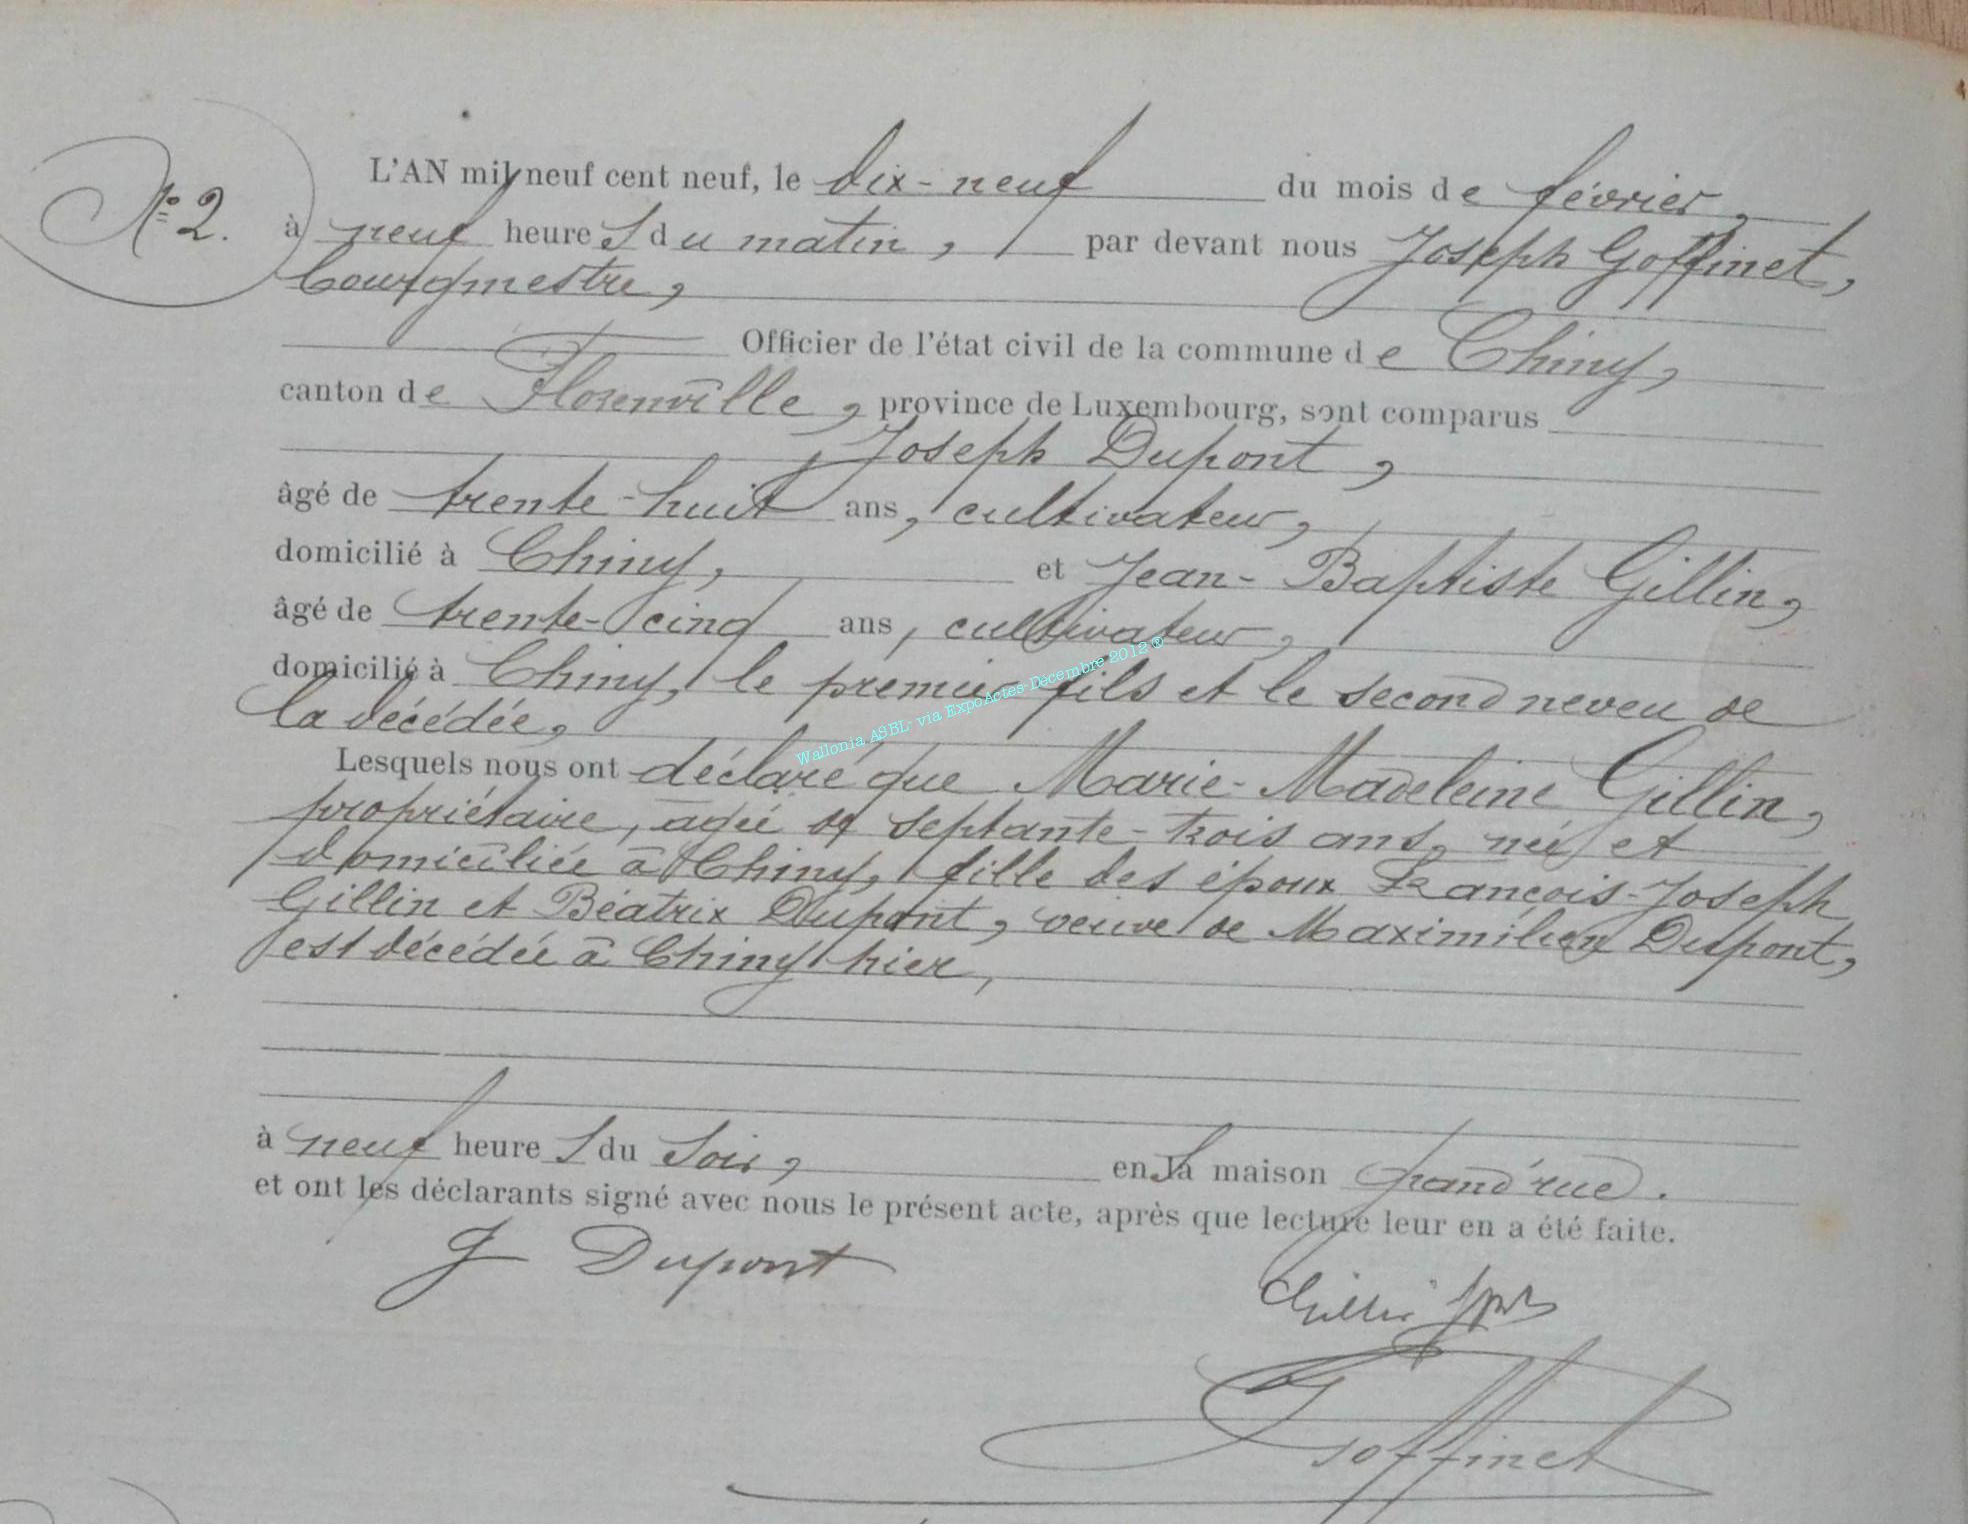 N° 2.
L'AN mil neuf cent neuf, le dix-neuf du mois de février,
à neuf heures du matin, par devant nous Joseph Goffinet,
bourgmestre,
Officier de l'état civil de la commune de Chiny,
canton de Florenville, province de Luxembourg, sont comparus
Joseph Dupont,
âgé de trente-huit ans, cultivateur,
domicilié à Chiny, et Jean-Baptiste Gillin,
âgé de trente-cinq ans, cultivateur,
domicilié à Chiny, le premier fils et le second neveu de
la décédée,
Wallonia ASBL- via ExpoActes-Décembre 2012 ®
Lesquels nous ont déclaré que Marie-Madeleine Gillin,
propriétaire, âgée de septante-trois ans, née et
domiciliée à Chiny, fille des époux François-Joseph
Gillin et Béatrix Dupont, veuve de Maximilien Dupont,
est décédée à Chiny hier,
à neuf heures du soir, en sa maison grand'rue.
et ont les déclarants signé avec nous le présent acte, après que lecture leur en a été faite.
J Dupont
Gillin
Goffinet